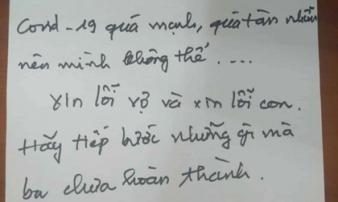 Covid-19 quá mạnh, quá tàn nhẫn
nên mình không thể ....
xin lỗi vợ và xin lỗi con.
Hãy tiếp bước những gì mà
ba chưa hoàn thành.